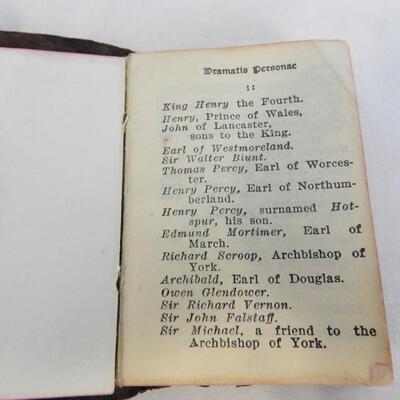 Dramatis Personae
::
King Henry the Fourth.
Henry, Prince of Wales,
John of Lancaster,
sons to the King.
Earl of Westmoreland.
Sir Walter Blunt.
Thomas Percy, Earl of Worces-
ter.
Henry Percy, Earl of Northum-
berland.
Henry Percy, surnamed Hot-
spur, his son.
Edmund Mortimer, Earl of
March.
Richard Scroop, Archbishop of
York.
Archibald, Earl of Douglas.
Owen Glendower.
Sir Richard Vernon.
Sir John Falstaff.
Sir Michael, a friend to the
Archbishop of York.